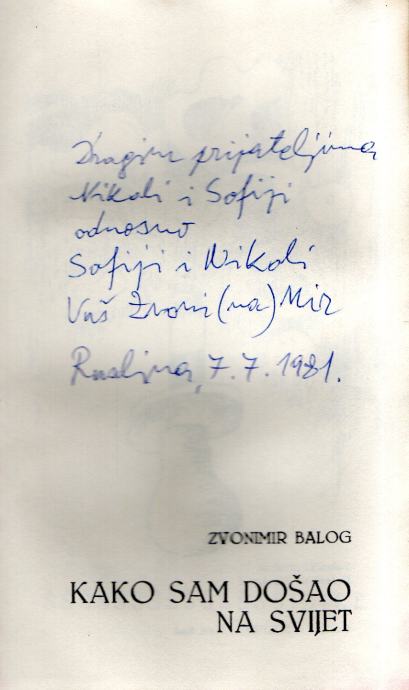 Dragim prijateljima
Nikoli i Sofiji
odnosno
Sofiji i Nikoli
Vaš Zvoni(na)Mir
7. 7. 1981.
ZVONIMIR BALOG
KAKO SAM DOŠAO
NA SVIJET